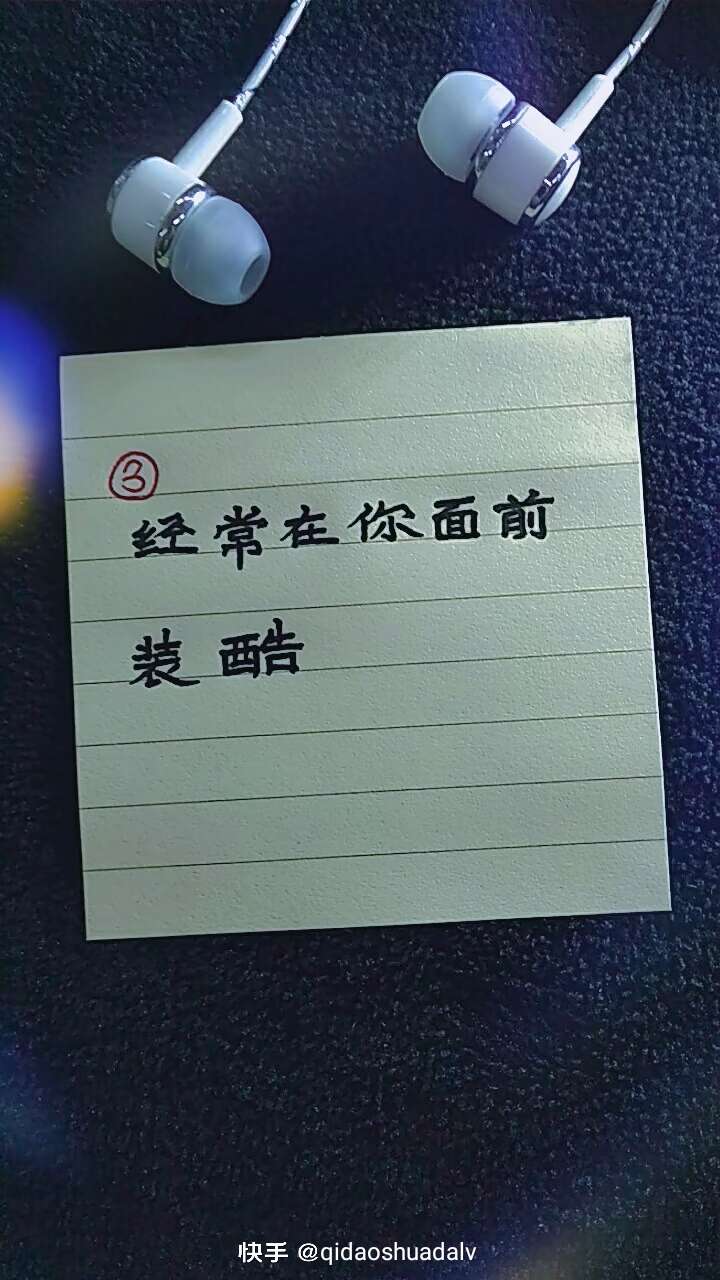 ③
经常在你面前
装酷
快手 @qidaoshuadalv